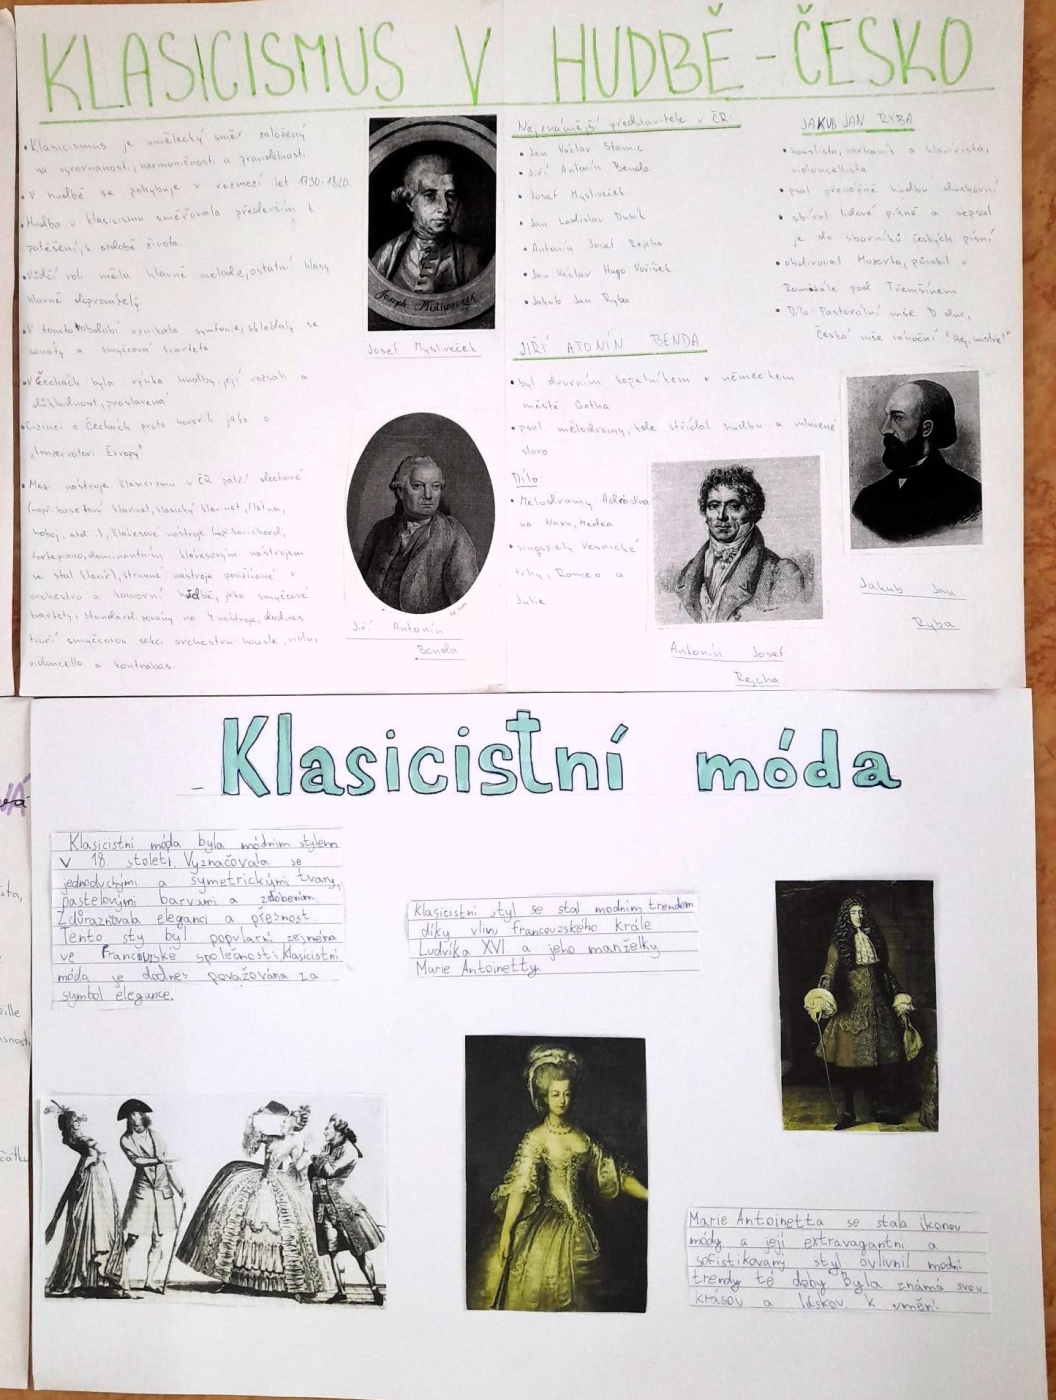 KLASICISMUS V HUDBĚ - ČESKO
• Klasicismus je umělecký směr založený
na vyrovnanosti, harmoničnosti a pravidelnosti.
• V hudbě se pohybuje v rozmezí let 1730-1820.
• Hudba v klasicismu směřovala především k
potěšení, k ozdobě života.
• Vůdčí roli měla hlavně melodie, ostatní hlasy
hlavně doprovázely
• V tomto období vznikala symfonie, skládaly se
sonáty a smyčcová kvarteta
• V Čechách byla výuka hudby, její rozsah a
důkladnost, proslavená
• Cizinci o Čechách proto hovořili jako o
"konzervatoři Evropy"
• Mezi nástroje klasicismu v ČR patří dechové
(např. basetový klarinet, klasický klarinet, flétna,
hoboj, atd.), klávesové nástroje
fortepiano, dominantním klávesovým nástrojem
se stal klavír), strunné nástroje používané v
orchestru a komorní hudbě, jako smyčcové
kvartety, standardizovány na 4 nástroje, dodnes
tvoří smyčcovou sekci orchestru housle, violu,
violoncello a kontrabas.
Joseph Misliweczek
Josef Mysliveček
Jiří Antonín
Benda
Nejznámější představitelé v ČR:
• Jan Václav Stamic
• Jiří Antonín Benda
• Josef Mysliveček
• Jan Ladislav Dusík
• Antonín Josef Rejcha
• Jan Václav Hugo Voříšek
• Jakub Jan Ryba
JIŘÍ ATONÍN BENDA
• byl dvorním kapelníkem v německém
městě Gotha
• psal melodramy, kde střídal hudbu a mluvené
slovo
Dílo
• Melodramy Adriadna
na Naxu, Medea
• singspiely Vesnické
trhy, Romeo a
Julie
Antonín Josef
Rejcha
JAKUB JAN RYBA
• houslista, varhaník a klavírista,
violoncellista
• psal převážně hudbu duchovní
• sbíral lidové písně a sepsal
je do sborníků českých písní
• obdivoval Mozarta, působil v
Rožmitále pod Třemšínem
• Dílo: Pastorální mše D dur,
Česká mše vánoční "Hej, mistře!"
Jakub Jan
Ryba
Klasicistní móda
Klasicistní móda byla módním stylem
v 18. století. Vyznačovala se
jednoduchými a symetrickými tvary,
pastelovými barvami a zdobením.
Zdůrazňovala eleganci a přesnost.
Tento sty byl populární zejména
ve francouzské společnosti. Klasicistní
móda je dodnes považována za
symbol elegance.
Klasicistní styl se stal modním trendem
díky vlivu francouzského krále
Ludvíka XVI. a jeho manželky
Marie Antoinetty
Marie Antoinetta se stala ikonou
módy a její extravagantní a
sofistikovaný styl ovlivnil modní
trendy té doby. Byla známá svou
krásou a láskou k umění.